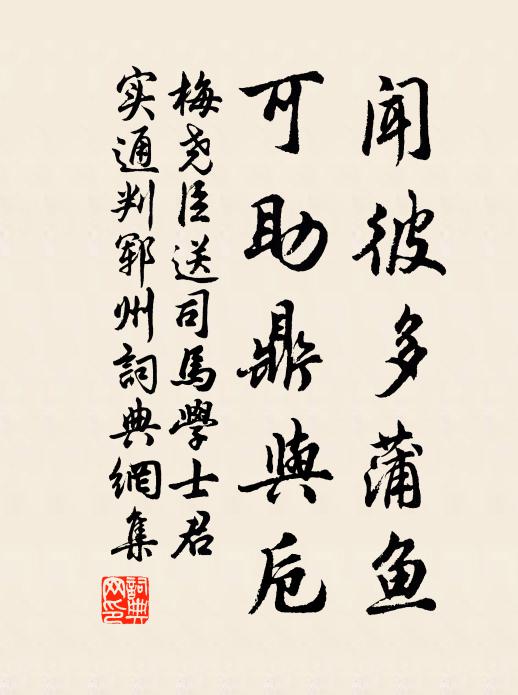 闻彼多蒲鱼
可助鼎與卮
梅尧臣送司馬學士君
实通判郓州詞典網集
詞典網印